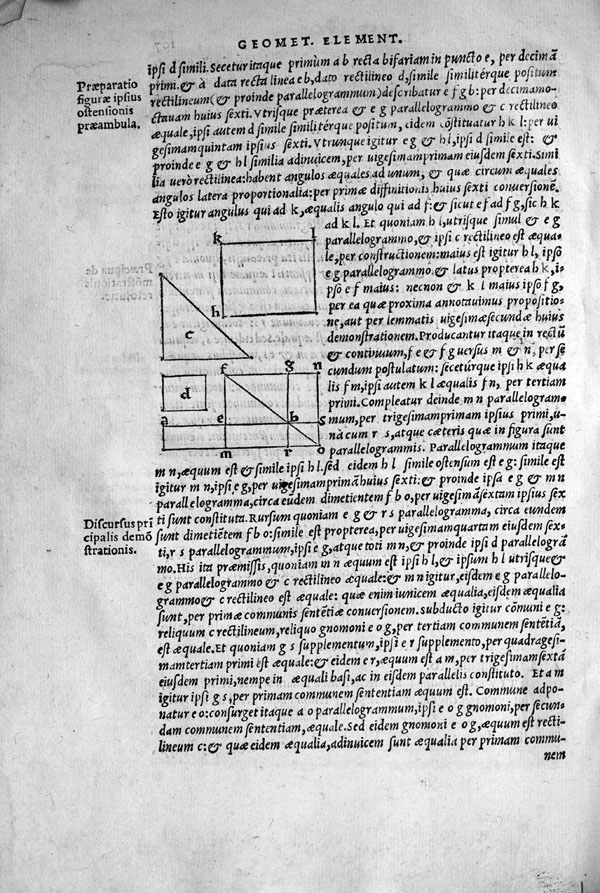 GEOMET. ELEMENT.
ipsi d simili. Secetur itaque primùm a b recta bifariam in puncto e, per decimā
Præparatio
figuræ ipsius
ostensionis
præambula.
primi. & à data recta linea e b, dato rectilineo d, simile similitérque positum
rectilineum (& proinde parallelogrammum) describatur e f g b: per decimamo-
ctauam huius sexti. Vtrisque præterea & e g parallelogrammo & c rectilineo
æquale, ipsi autem d simile similitérque positum, eidem cōstituatur h k l: per ui
gesimamquintam ipsius sexti. Vtrunque igitur e g & h l, ipsi d simile est: &
proinde e g & h l similia adinuicem, per uigesimamprimam eiusdem sexti. Simi
lia uerò rectilinea: habent angulos æquales ad unum, & quæ circum æquales
angulos latera proportionalia: per primæ diffinitionis huius sexti conuersionē.
Esto igitur angulus qui ad k, æqualis angulo qui ad f: & sicut e f ad f g, sic h k
ad k l. Et quoniam h l, utrisque simul & e g
parallelogrammo, & ipsi c rectilineo est æqua-
le, per constructionem: maius est igitur h l, ipso
e g parallelogrammo & latus propterea h k, i-
pso e f maius: necnon & k l maius ipso f g,
per ea quæ proxima annotauimus propositio-
ne, aut per lemmatis uigesimæsecundæ huius
demonstrationem. Producantur itaque in rectū
& continuum, f e & f g uersus m & n, per se
cundum postulatum: seceturque ipsi h k æqua
lis f m, ipsi autem k l æqualis f n, per tertiam
primi. Compleatur deinde m n parallelogram-
mum, per trigesimamprimam ipsius primi, u-
nà cum r s, atque cæteris quæ in figura sunt
parallelogrammis. Parallelogrammum itaque
k l
h
c
d
f g n
a e b s
m r o
m n, æquum est & simile ipsi h l. sed eidem h l simile ostensum est e g: simile est
igitur m n, ipsi e g, per uigesimamprimā huius sexti: & proinde ipsa e g & m n
parallelogramma, circa eundem dimetientem f b o, per uigesimāsextam ipsius sex
Discursus pri
cipalis demō
strationis.
ti sunt constituta. Rursum quoniam e g & r s parallelogramma, circa eundem
sunt dimetiētem f b o: simile est propterea, per uigesimamquartam eiusdem sex-
ti, r s parallelogrammum, ipsi e g, atque toti m n, & proinde ipsi d parallelográ
mo. His ita præmissis, quoniam m n æquum est ipsi h l, & ipsum h l utrisque &
e g parallelogrammo & c rectilineo æquale: & m n igitur, eisdem e g parallelo-
grammo & c rectilineo est æquale: quæ enim iunicem æqualia, eisdem æqualia
sunt, per primæ communis sentētiæ conuersionem. subducto igitur cōmuni e g:
reliquum c rectilineum, reliquo gnomoni e o g, per tertiam communem sententiā,
est æquale. Et quoniam g s supplementum, ipsi e r supplemento, per quadragesi-
mamtertiam primi est æquale: & eidem e r, æquum est a m, per trigesimamsextā
eiusdem primi, nempe in æquali basi, ac in eisdem parallelis constituto. Et a m
igitur ipsi g s, per primam communem sententiam æquum est. Commune adpo-
natur e o: consurget itaque a o parallelogrammum, ipsi e o g gnomoni, per secun-
dam communem sententiam, æquale. Sed eidem gnomoni e o g, æquum est recti-
lineum c: & quæ eidem æqualia, adinuicem sunt æqualia per primam commu-
nem